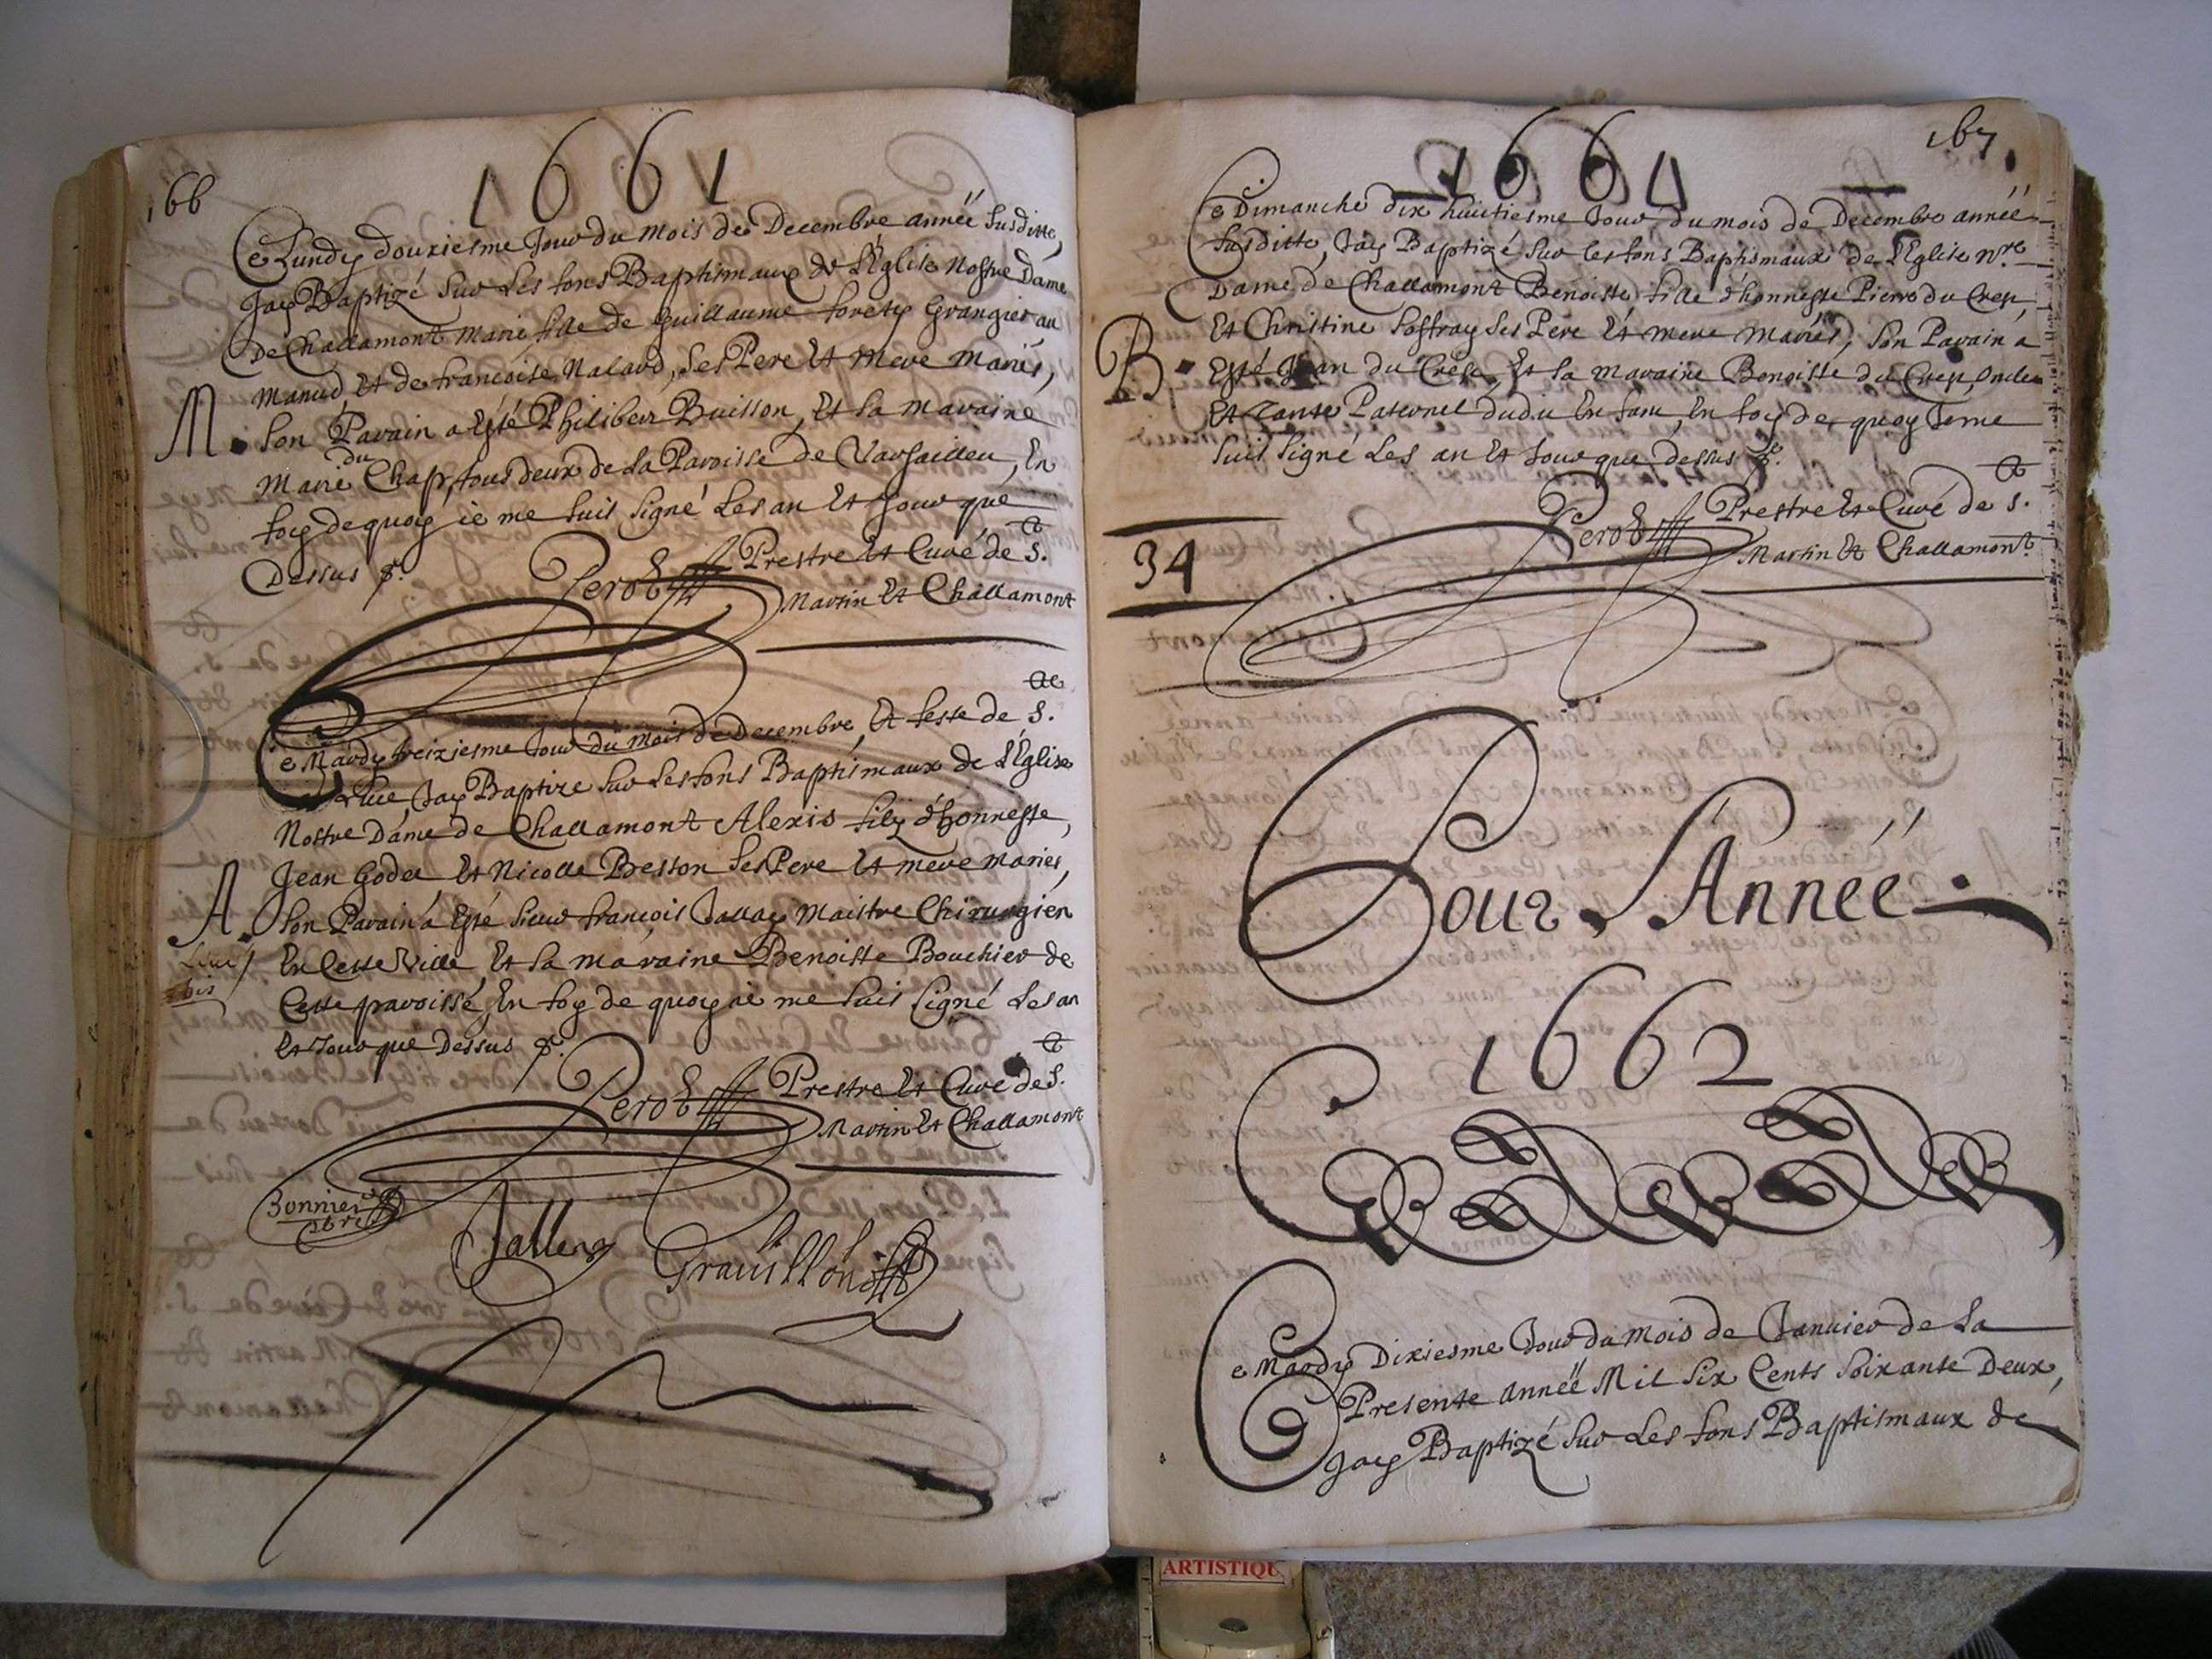 1661
166
Ce Lundy douziesme Jour du mois de Decembre année Susditte,
Jay Baptizé Sur Les fons Baptismaux de L'Eglise Nostre Dame
De Challamont Marie fille de Guillaume forety Grangier au
Manud, et de francoise Nalaud, Ses Pere Et Mere Mariés,
M. Son Parain a Esté Philibert Buisson, Et Sa Maraine
Marie du Chap, tous deux de La Paroisse de Varsailleu, En
foy de quoy ie me suis signé Les an Et Jour que
Dessus &.
Perot Prestre Et Curé de S.t
Martin Et Challamont
Ce Mardy treiziesme Jour du mois de Decembre, Et feste de S.te
Luce, Jay Baptize Sur Les fons Baptismaux de L'Eglise
Nostre Dame de Challamont Alexis filz d'honneste,
Jean Godet Et Nicolle Besson Ses Pere Et mere mariés,
A. Son Parain a Esté Sieur francois Jallay Maistre Chirurgien
En Cette Ville Et Sa maraine Benoiste Bouchier de
Cette paroisse, En foy de quoy ie me suis signé Les an
Et Jour que Dessus &.
Perot Prestre Et Curé de S.t
Martin Et Challamont
Bonnier
pbre
Jallay
Grauillon
1661
167
Ce Dimanche dix huictiesme Jour du mois de Decembre année
Susditte, Jay Baptizé Sur Les fons Baptismaux de L'Eglise N.re
Dame de Challamont Benoiste fille d'honneste Pierre du Crep
Et Christine Soffray Ses Pere Et mere Mariés, Son Parain a
B. Esté Jean du Crep, Et Sa maraine Benoiste du Crep, Oncle
Et Tante Paternel dudit Enfant, En foy de quoy Je me
Suis Signé Les an Et Jour que dessus &.
Perot Prestre Et Curé de S.t
Martin Et Challamont
34
Pour L'Année
1662
Ce Mardy Dixiesme Jour du Mois de Januier de La
Presente année Mil Six Cents Soixante Deux,
Jay Baptizé Sur Les fons Baptismaux de
ARTISTIQU